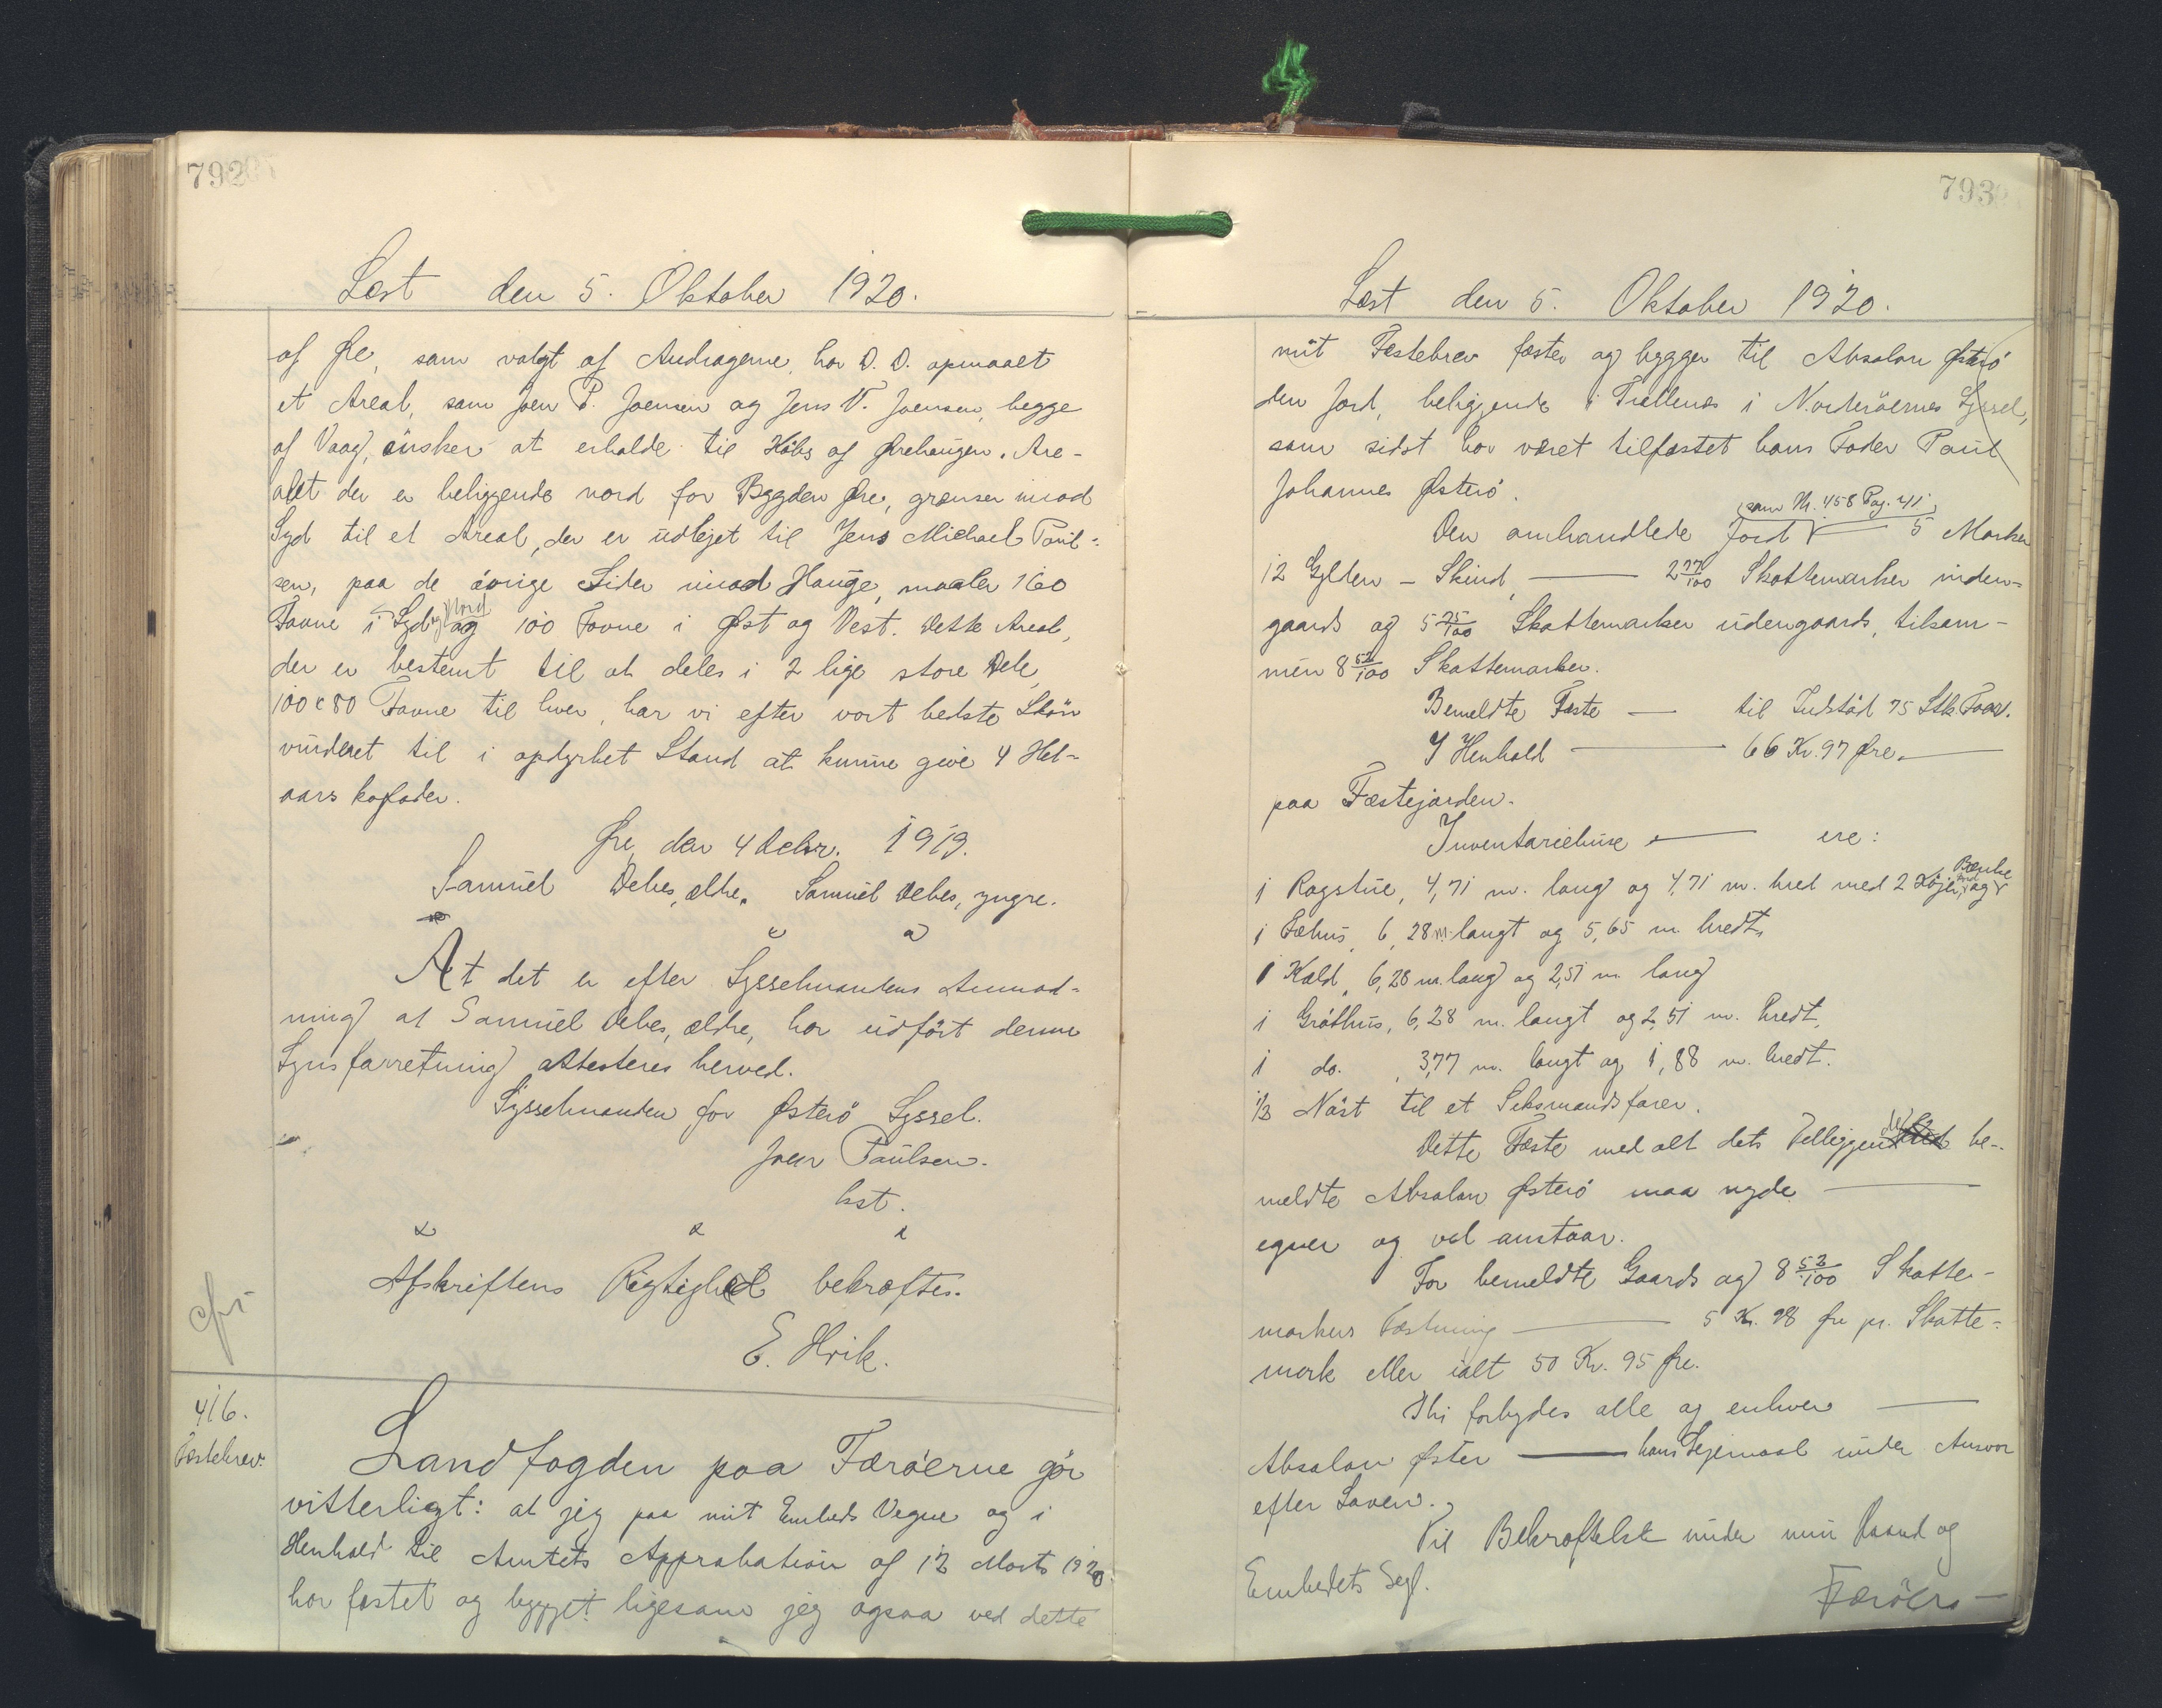 792
Læst den 5. Oktober 1920.
af Øre, som valgt af Andragerne, har D. D. opmaalt
et Areal, som Joen P. Joensen og Jens V. Joensen, begge
af Vaag, önsker at erholde til Köbs af Ørehaugen. Are-
alet der er beliggende nord for Bygden Øre, grænser imod
Syd til et Areal, der er udlejet til Jens Michael Poul-
sen, paa de övrige Sider imod Hauge, maaler 160
Favne i Syd og Nord og 100 Favne i Øst og Vest. Dette Areal,
der er bestemt til at deles i 2 lige store Dele,
100 x 80 Favne til hver, har vi efter vort bedste Skön
vurderet til i opdyrket Stand at kunne give 4 Hel-
aars kofoder.
Øre, den 4 Decbr. 1919.
Samuel Debes, ældre. Samuel Debes, yngre.
At det er efter Sysselmandens Anmod-
ning at Samuel Debes, ældre, har udfört denne
Synsforretning attesteres herved.
Sysselmanden for Österö Syssel.
Joen Poulsen.
kst.
Afskriftens Rigtighed bekræftes.
E. Hrik.
416.
Fæstebrev.
Landfogden paa Færöerne gör
vitterligt: at jeg paa mit Embeds Vegne og i
Henhold til Amtets Approbation af 12 Marts 1920
har fæstet og bygget ligesom jeg ogsaa ved dette
793
Læst den 5. Oktober 1920.
mit Fæstebrev fæster og bygger til Absalon Österö
den Jord, beliggende i Trællenæs i Norderöernes Syssel,
som sidst har været tilfæstet hans Fader Poul
Johannes Österö.
(som Nr. 458 Pag. 41)
Den omhandlede Jord — 5 Marker
12 Gylden - Skind, — 2 77/100 Skattemarker inden-
gaards og 5 75/100 Skattemarker udengaards, tilsam-
men 8 52/100 Skattemarker.
Bemeldte Fæste — til Indstöd 75 Stk. Faar.
I Henhold — 66 Kr. 97 Øre. —
paa Fæstejorden.
Inventariehuse — ere:
1 Rogstue, 4,71 m. lang og 4,71 m. bred med 2 Löjer, og Bænke
1 Fæhus, 6,28 m. langt og 5,65 m bredt,
1 Kald, 6,28 m. lang og 2,51 m. lang
1 Gröthus, 6,28 m. langt og 2,51 m. bredt,
1 do. , 3,77 m. langt og 1,88 m. bredt.
1/3 Nöst til et Seksmandsfarer.
Dette Fæste med alt dets Tilliggende be-
meldte Absalon Österö maa nyde —
egner og vel anstaar.
For bemeldte Gaards og 8 52/100 Skatte-
markers Fæstning — 5 Kr. 98 Øre pr. Skatte-
mark eller ialt 50 Kr. 95 Øre.
Thi forbydes alle og enhver —
Absalon Öster — hans Lejemaal under Ansvar
efter Loven.
Til Bekræftelse under min Haand og
Embedets Segl.
Færöers —